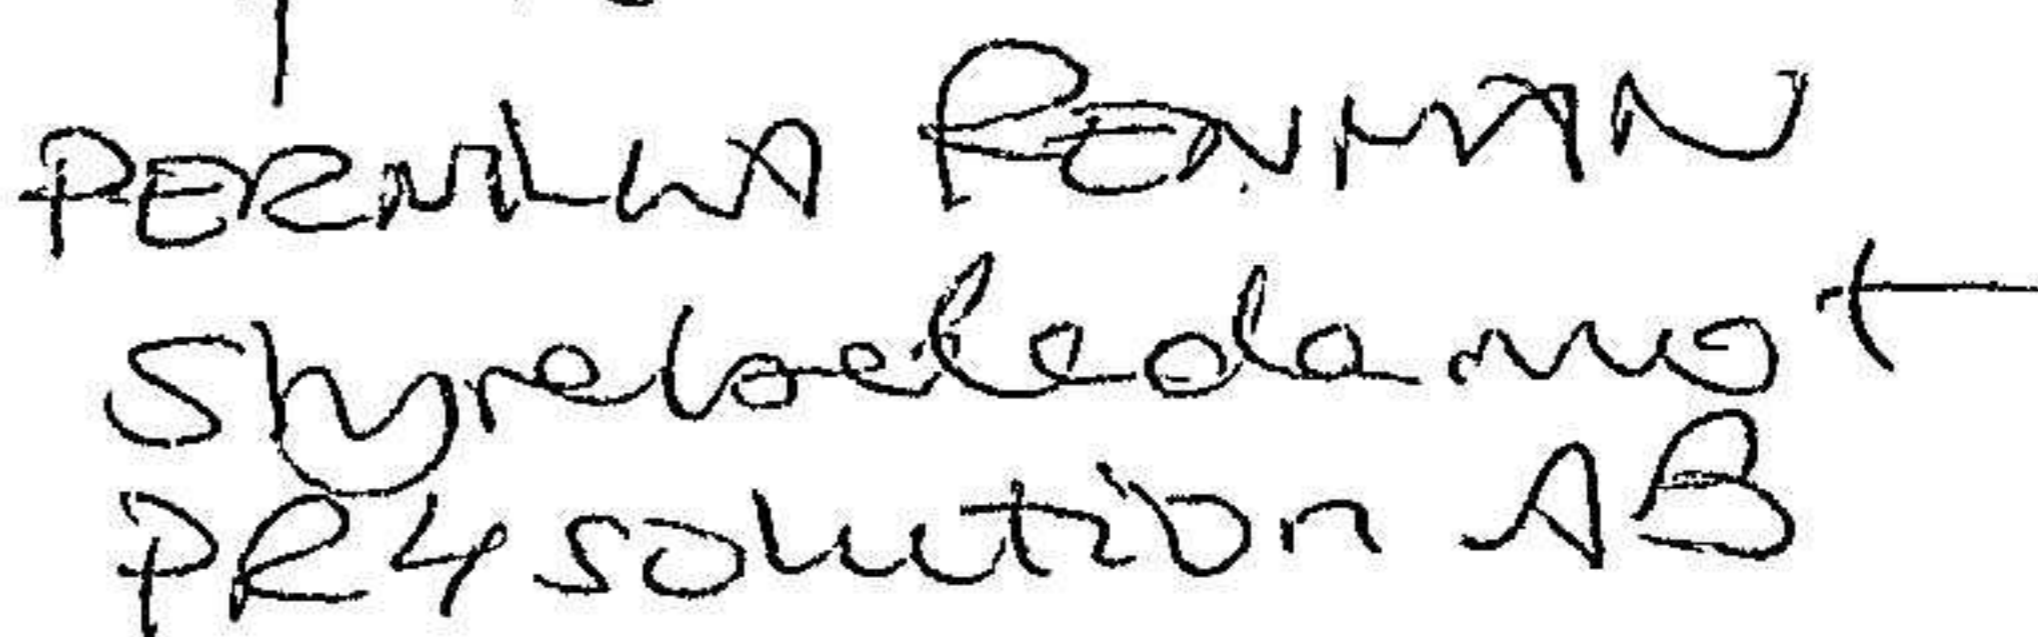 PERNILLA RENMAN
Styrelseledamot
PR4solution AB